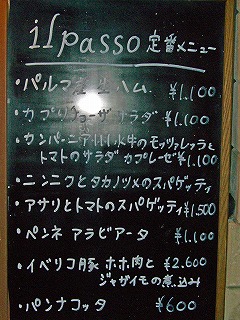 il passo 定番メニュー
・パルマ産生ハム ¥1.100
・カプリチョーザサラダ ¥1.100
・カンパーニア州水牛のモッツァレラと
トマトのサラダ カプレーゼ ¥1.100
・ニンニクとタカノツメのスパゲッティ
・アサリとトマトのスパゲッティ ¥1.500
・ペンネ アラビアータ ¥1.100
・イベリコ豚 ホホ肉と ¥2.600
ジャガイモの煮込み
・パンナコッタ ¥600